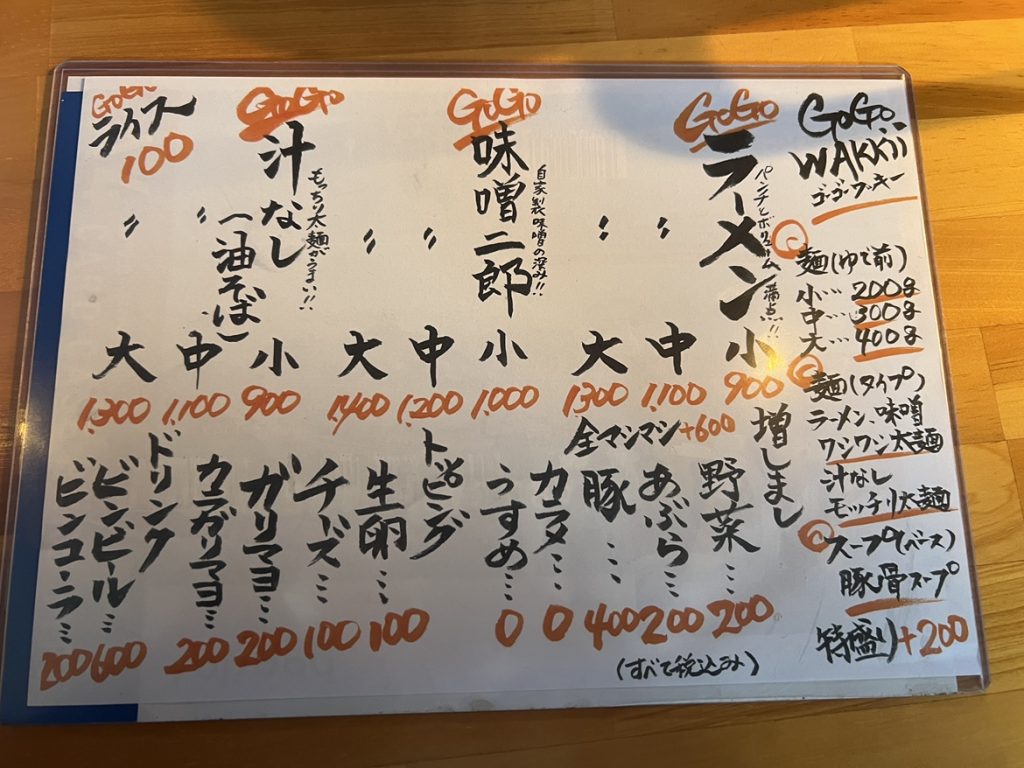 GoGo.
WAKKii
ゴーゴーワッキー
麺(ゆで前)
小…200g
中…300g
大…400g
麺(タイプ)
ラーメン、味噌
ワシワシ太麺
汁なし
モッチリ太麺
スープ(ベース)
豚骨スープ
特盛り+200
GoGo
ラーメン
パンチとボリューム満点!!
小 900
〃 中 1,100
〃 大 1300
GoGo
味噌二郎
自家製味噌の深み!!
小 1,000
〃 中 1,200
〃 大 1,400
GoGo
汁なし
(油そば)
もっちり太麺がうまい!!
小 900
〃 中 1,100
〃 大 1,300
GoGo
ライス
100
増しまし
全マシマシ+600
野菜…200
あぶら…200
豚…400
カタメ…0
うすめ…0
トッピング
生卵…100
チーズ…100
ガリマヨ…200
カラガリマヨ…200
ドリンク
ビンビール…600
ビンコーラ…200
(すべて税込み)